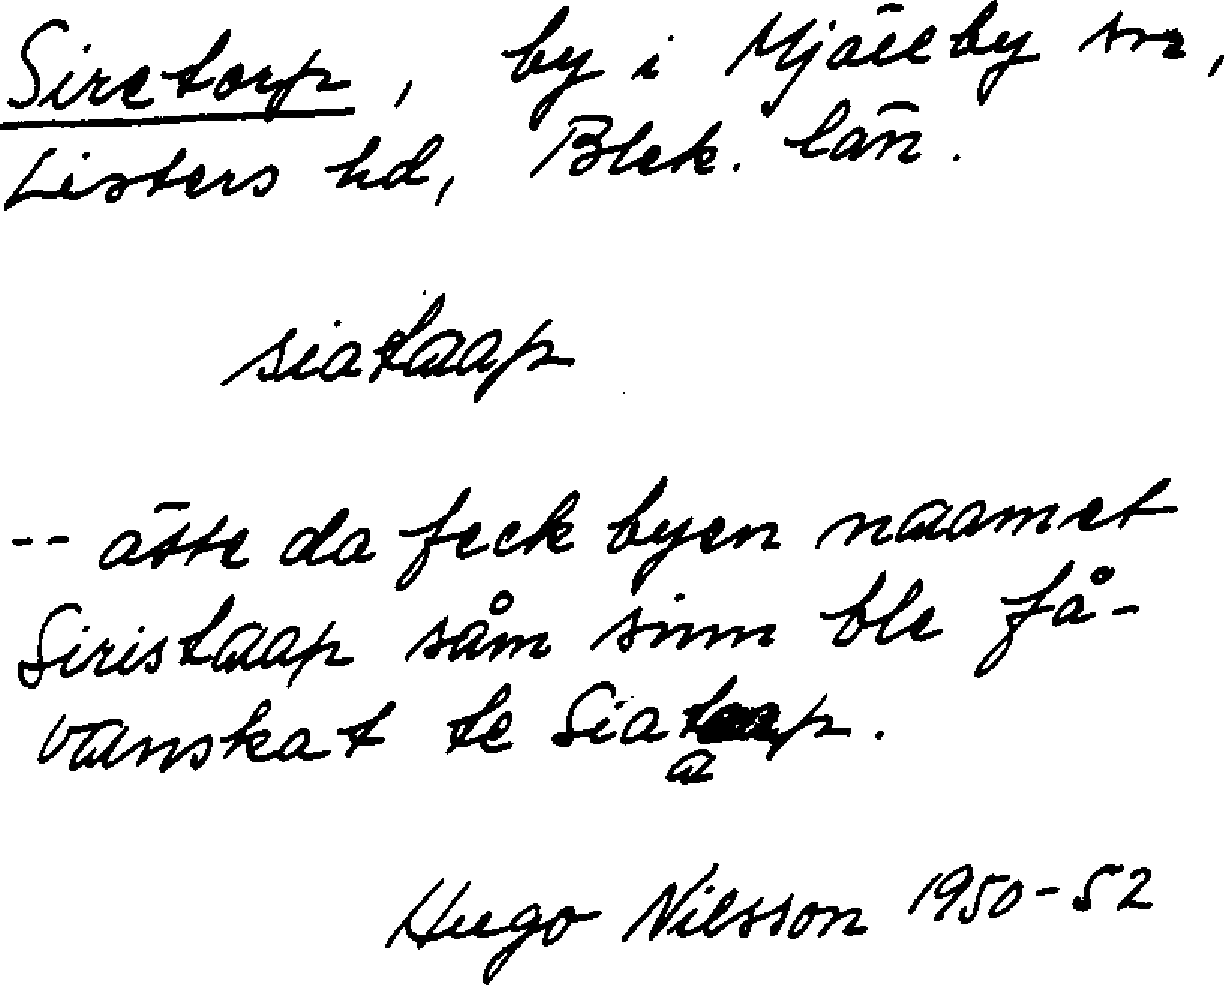 Siretorp, by i Mjällby sn,
Listers hd, Blek. län.
siataap
-- ätte da feck byen naamet
Siristaap såm sinn ble få-
vanskat te Siataap.
Hugo Nilsson 1950-52